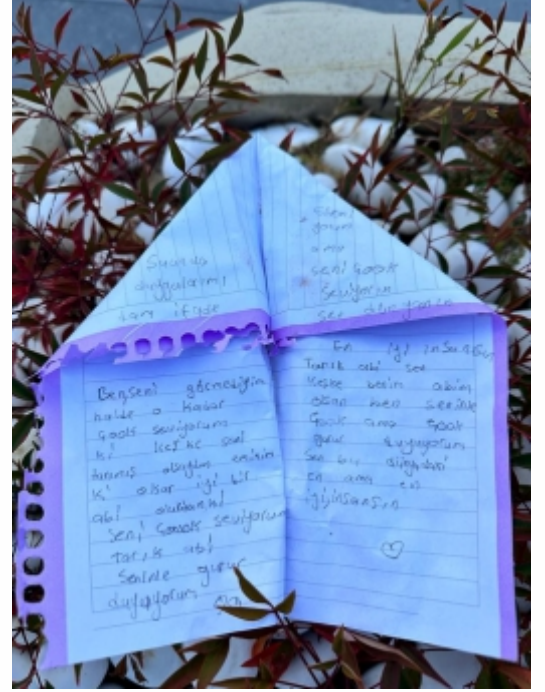 Şuanda
duygularımı
tam ifade
seni çoook
Seviyorum
sen dünyanın
Benseni görmediğim
halde o kadar
çook seviyorum
ki keşke seni
ki o kadar iyi bir
abi olurdunki
Seni çoook seviyorum
Tarık abi
Seninle gurur
duyuyorum
En iyi insanısın
Tarık abi sen
keşke benim abim
olsan ben seninle
çook ama çook
gurur duyuyorum
Sen bu dünyadaki
en ama en
iyiinsansın